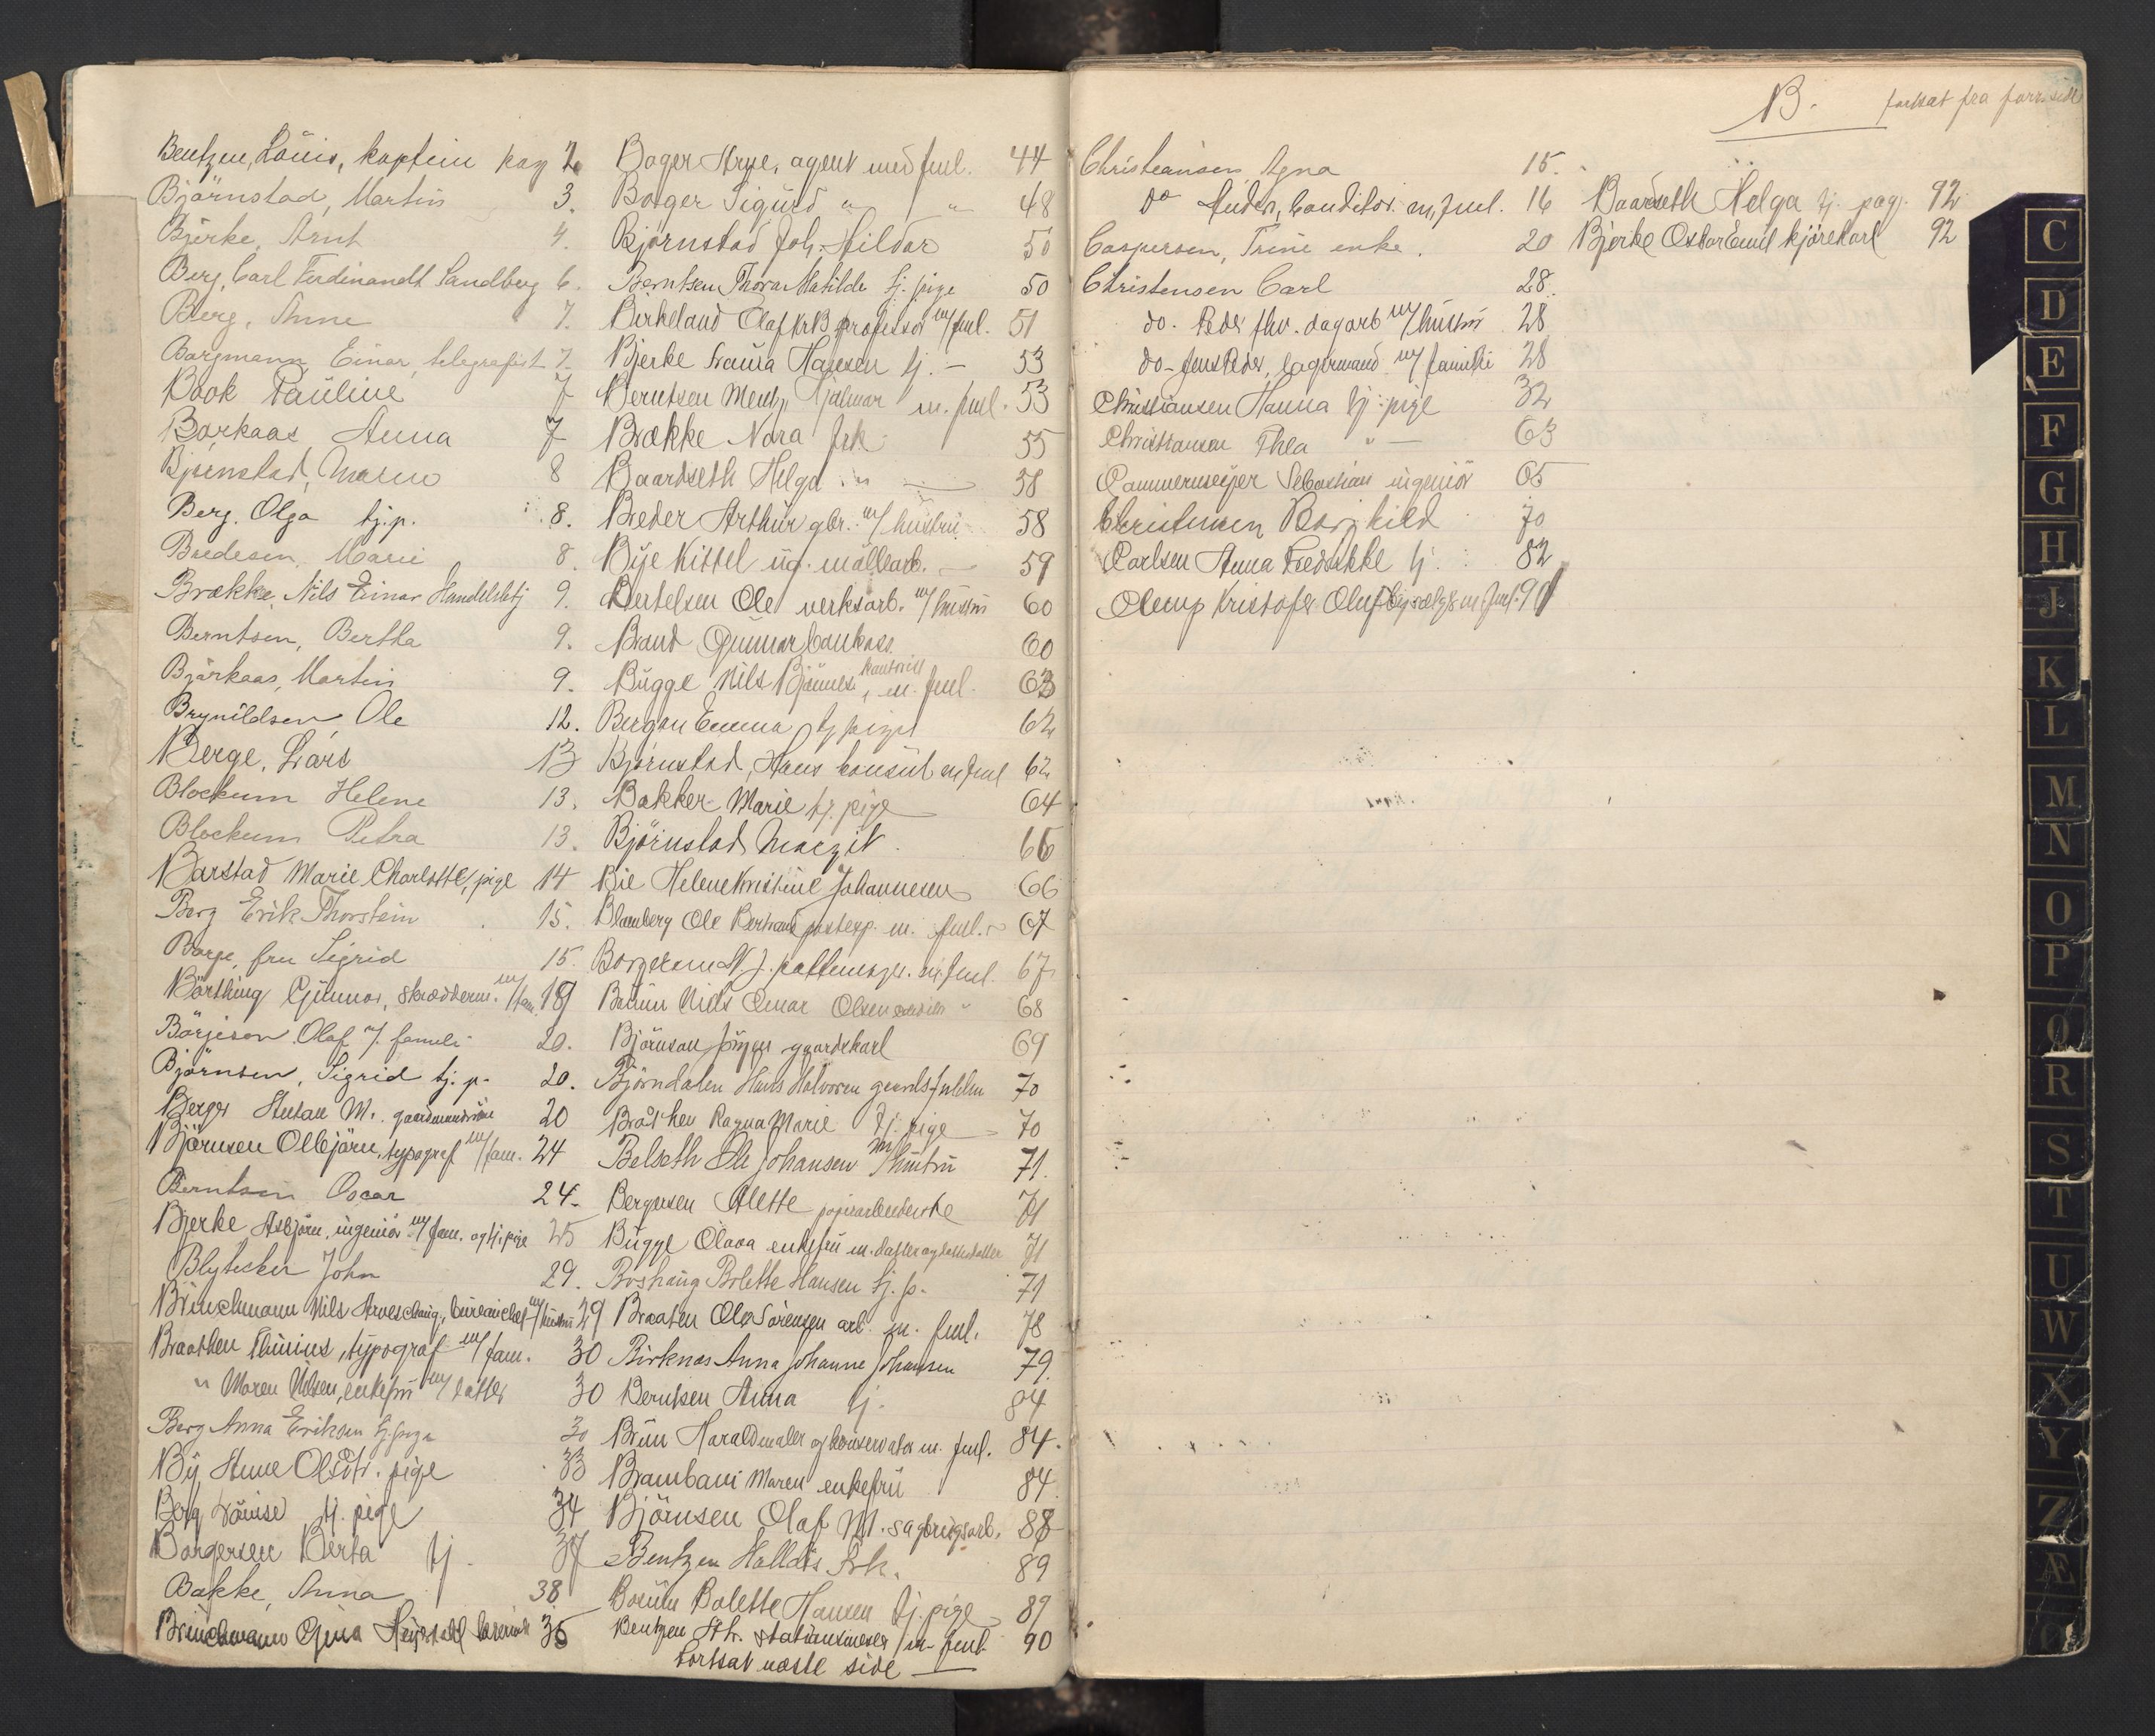 Bentzen, Louis, kaptein pag 2
Björnstad, Martin 3.
Bjerke, Arnt 4.
Berg, Carl Ferdinandt Sandberg 6.
Berg, Anne 7.
Borgmann, Einar, telegrafist 7.
Book Pauline 7
Borkaas Anna 7
Björnstad, Maren 8
Berg, Olga tj.p. 8.
Bredesen, Marie 8.
Brække, Nils Einar Handelsbetj 9.
Berntsen, Bertha 9.
Bjørkaas, Martin 9.
Brynildsen, Ole 12.
Berge, Lars 13
Blockum Helene 13.
Blockum Petra 13.
Barstad Marie Charlotte, pige 14
Berg Erik Thorstein 15.
Borge, fru Sigrid 15.
Börthing Gunnar, skræddeerm. m/fam. 19
Börjeson Olaf m/ famili 20.
Björnsen, Sigrid tj. p. 20.
Berger M. 20
Björnsen Olbjörn, typograf m/fam. 24
Berntsen Oscar 24.
Bjerke Asbjörn, ingeniör m/fam. og tj.pige 25
Blytecker John 29.
Brinchmann Nils, bureauchef m/hustru 29
Braathen Thinius, typograf m/fam. 30
" Maren Nilsen, enkefru m/ datter 30
Berg Anna Eriksen tj.pige 30
By Anne Olsdtr. pige 33
Berg Louise tj. pige 34
Borgersen Berta tj. 37
Bakke, Anna 38
Brinchmann Gina 36
Boger Arne, agent med fml. 44
Borger Sigurd " " 48
Bjørnstad Joh. Hildar 50
Berntsen Thora Matilde tj. pige 50
Birkeland Olaf Kr B professor m/fml. 51
Bjerke Laura Hansen tj. — 53
Berntsen Mentz Hjalmar m. fml. 53
Brække Nora frk. 55
Baardseth Helga " — 58
Breder Arthur gbr. m/ hustru 58
Bye Kittel ug. möllearb. — 59
Bertelsen Ole verksarb. m/hustru 60
Brand Gunnar bankass. 60
Bugge Nils Bjarnes, m. fml. 63
Bergan Emma tj pige 62
Bjørnstad, Hans konsul m fml 62
Bakker Marie tj. pige 64
Björnstad Margit. 66
Bie Helene Kristine Johannesen 66
Blomberg Ole Bernhard postexp. m. fml. 67
Borgersen N J. m. fml. 67
Bruun Niels Einar Olsen " 68
Björnson Jörgen gaardskarl 69
Björndalen Hans Halvorsen 70
Bråthen Ragna Marie tj. pige 70
Belseth Ole Johansen m/hustru 71.
Bergersen Alette papirarbeiderske 71
Bugge Olava enkefru m. datter og datterdatter 71
Boshaug Bolette Hansen tj. p. 71
Braaten Ole Sörensen arb. m. fml. 78
Birknes Anna Johanne Johansen 79.
Berntsen Anna tj. 84
Bruun Harald maler og konservator m. fml. 84.
Brambani Maren enkefru 84
Björnsen Olaf M. sagbrugsarb. 88
Bentzen Halldis Frk. 89
Borum Bolette Hansen tj. pige 89
Bentzen Chr. stationsmester m. fml. 90
Fortsat næste side —
B. fortsat fra forr. side
Christiansen, Agna 15.
do Anders, Conditor. m. fml. 16
Caspersen, Trine enke. 20
Christensen Carl 28.
do. Peder fhv. dagarb m/hustru 28
do- Jens Peder, lagermand m/ familie 28
Christiansen Hanna tj. pige 32
Christiansen Thea " — 63
Cammermeijer Sebastian ingeniör 65
Christensen Borghild 70
Carlsen Anna Fredrikke tj. 82
Olerup Kristofer Oluf m. fml. 91
Baardseth Helga tj. pag. 92
Bjerke Oskar Emil kjörekarl 92
C
D
E
F
G
H
J
K
L
M
N
O
P
Q
R
S
T
U
W
X
Y
Z
Æ
Ø